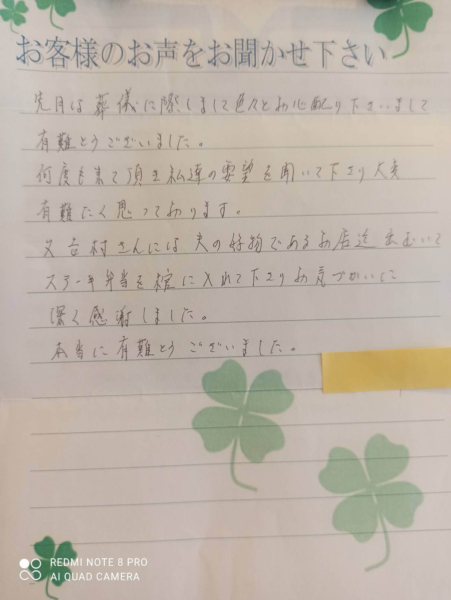 お客様のお声をお聞かせ下さい
先月は葬儀に際しまして色々とお心配り下さいまして
有難とうございました。
何度も来て頂き私達の要望を聞いて下さり大変
有難たく思っております。
又吉村さんには夫の好物であるお店迄出むいて
ステーキ弁当を棺に入れて下さりお気づかいに
深く感謝しました。
本当に有難とうございました。
REDMI NOTE 8 PRO
AI QUAD CAMERA